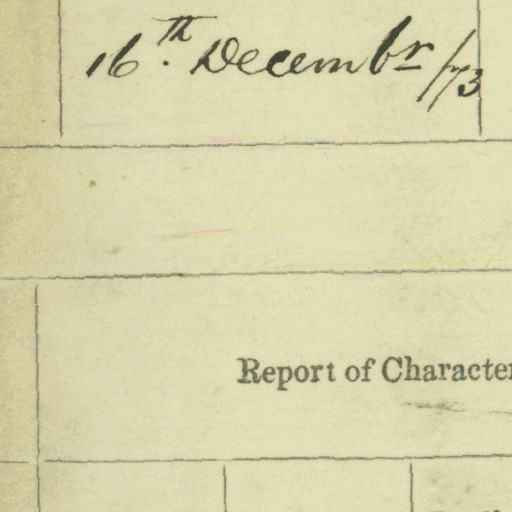 16th. Decembr/73
Report of Character